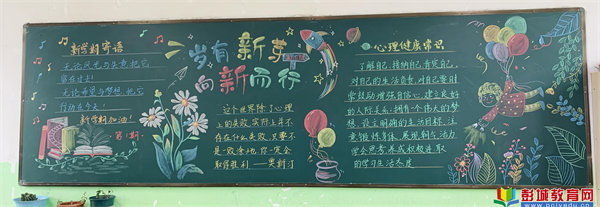 新学期寄语
无论风光与失意,把它
留在过去!
无论希望与梦想,把它
行动在今天!
新学期加油!
第1期
岁有新芽
向新而行
这个世界除了心理
上的失败,实际上并不
存在什么失败,只要不
是一败涂地,你一定会
取得胜利——奥斯汀
心理健康常识
了解自己,接纳自己,肯定自己,
对自己的生活负责,对自己要时
常鼓励,增强自信心,建立良好
的人际关系,拥有个伟大的梦
想,设立明确的生活目标,注
意锻炼身体,展现朝气活力
学会思考,养成积极进取
的学习生活态度
彭城教育网